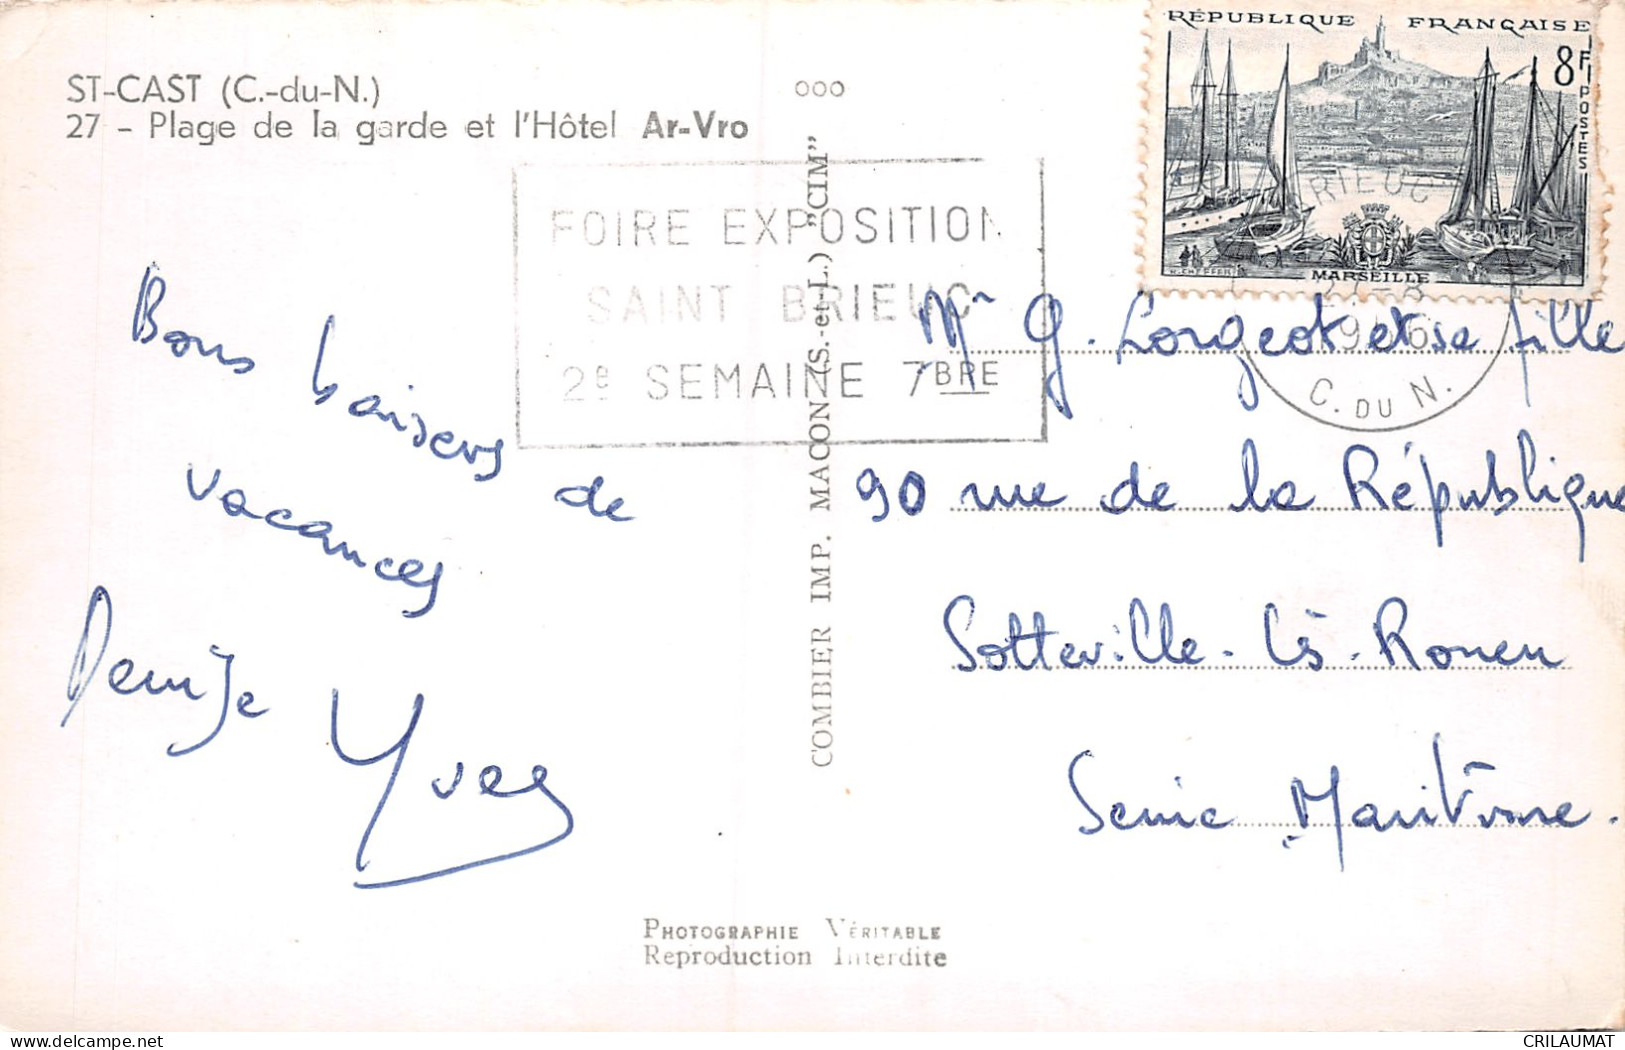 ST-CAST (C.-du-N.)
27 - Plage de la garde et l'Hôtel Ar-Vro
ooo
RÉPUBLIQUE FRANÇAISE
8F
POSTES
MARSEILLE
FOIRE EXPOSITION
SAINT BRIEUC
2e SEMAINE 7BRE
BRIEUC
C. DU N.
COMBIER IMP. MACON (S.-et-L.) "CIM"
Bons baisers de
vacances
Denise
Yves
Mr G. Lorgeot et sa fille
90 rue de la République
Sotteville-lès-Rouen
Seine Maritime.
PHOTOGRAPHIE VÉRITABLE
Reproduction Interdite
delcampe.net
CRILAUMAT